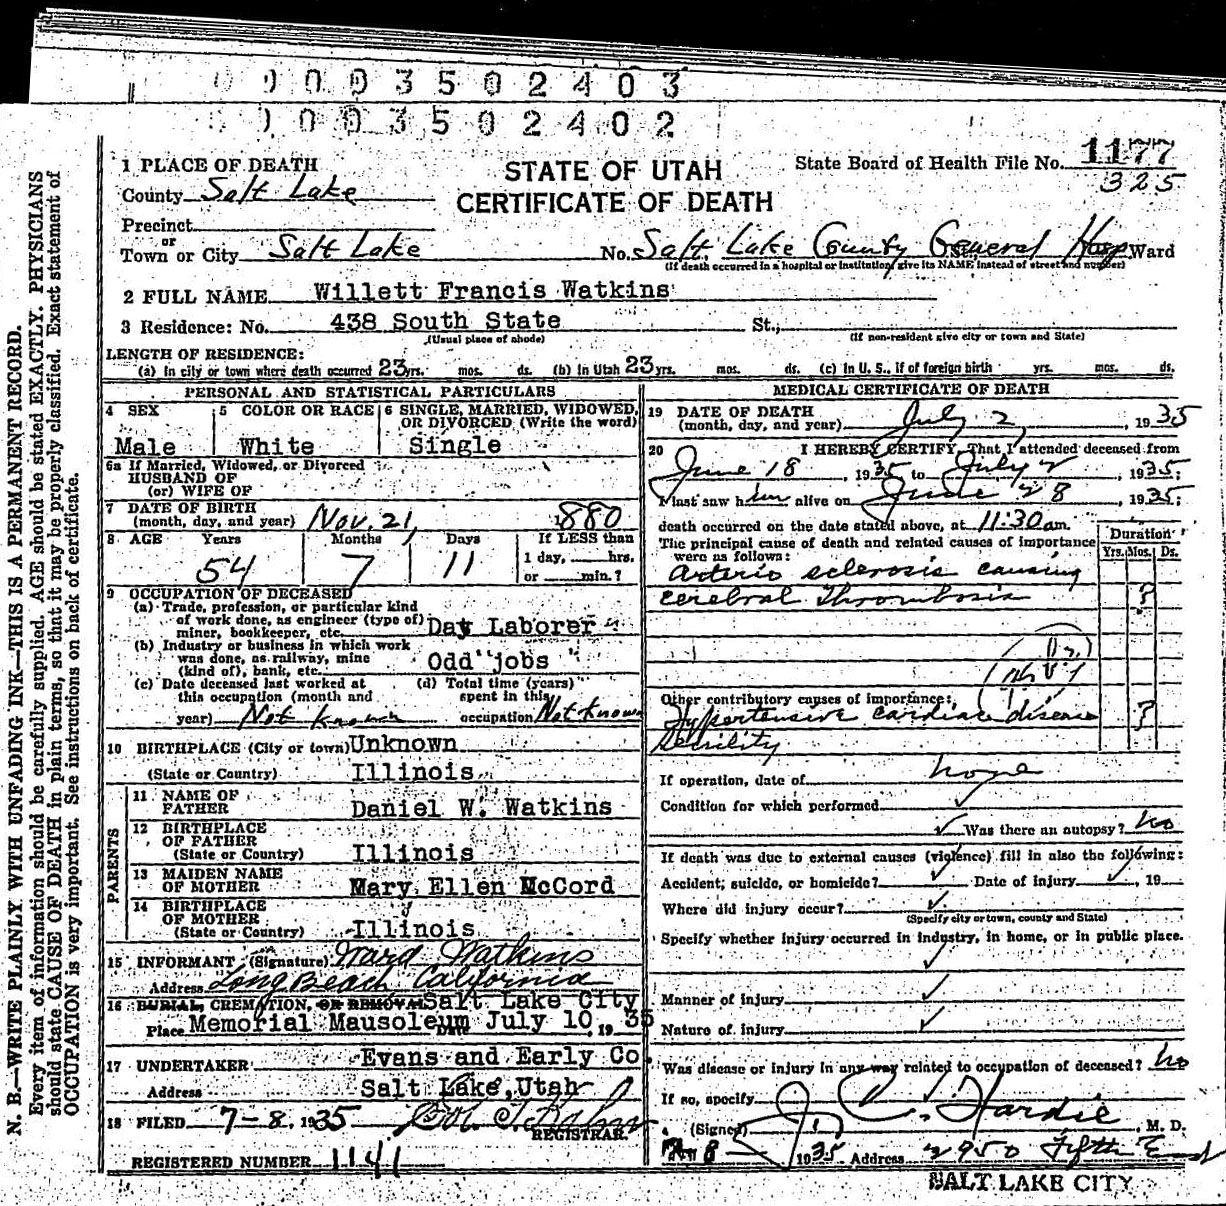 0003502403
0003502402
1 PLACE OF DEATH
STATE OF UTAH
CERTIFICATE OF DEATH
State Board of Health File No. 1177
325
County Salt Lake
Precinct
or
Town or City Salt Lake No. Salt Lake County General Hosp Ward
(If death occurred in a hospital or institution, give its NAME instead of street and number)
2 FULL NAME Willett Francis Watkins
3 Residence: No. 438 South State St.,
(Usual place of abode) (If non-resident give city or town and State)
LENGTH OF RESIDENCE:
(a) In city or town where death occurred 23 yrs. mos. ds. (b) In Utah 23 yrs. mos. ds. (c) In U. S., if of foreign birth yrs. mos. ds.
PERSONAL AND STATISTICAL PARTICULARS
4 SEX 5 COLOR OR RACE 6 SINGLE, MARRIED, WIDOWED, OR DIVORCED (Write the word)
Male White Single
6a If Married, Widowed, or Divorced
HUSBAND OF
(or) WIFE OF
7 DATE OF BIRTH
(month, day, and year) Nov. 21, 1880
8 AGE Years Months Days If LESS than
1 day, hrs.
54 7 11 or min.?
9 OCCUPATION OF DECEASED
(a) Trade, profession, or particular kind
of work done, as engineer (type of)
miner, bookkeeper, etc. Day Laborer
(b) Industry or business in which work
was done, as railway, mine
(kind of), bank, etc. Odd jobs
(c) Date deceased last worked at (d) Total time (years)
this occupation (month and spent in this
year) Not known occupation Not known
10 BIRTHPLACE (City or town) Unknown
(State or Country) Illinois
PARENTS
11 NAME OF
FATHER Daniel W. Watkins
12 BIRTHPLACE
OF FATHER
(State or Country) Illinois
13 MAIDEN NAME
OF MOTHER Mary Ellen McCord
14 BIRTHPLACE
OF MOTHER
(State or Country) Illinois
15 INFORMANT (Signature) Ward Watkins
Address Long Beach California
16 BURIAL, CREMATION, OR REMOVAL Salt Lake City
Place Memorial Mausoleum Date July 10, 1935
17 UNDERTAKER Evans and Early Co.
Address Salt Lake, Utah
18 FILED 7-8, 1935
REGISTRAR.
REGISTERED NUMBER 1141
MEDICAL CERTIFICATE OF DEATH
19 DATE OF DEATH
(month, day, and year) July 2, 1935
20 I HEREBY CERTIFY, That I attended deceased from
June 18, 1935 to July 2, 1935;
I last saw him alive on June 28, 1935;
death occurred on the date stated above, at 11:30 am.
The principal cause of death and related causes of importance
were as follows:
Duration
Yrs. Mos. Ds.
Arterio sclerosis causing
cerebral thrombosis ?
Other contributory causes of importance:
Hypertensive cardiac disease ?
Senility
If operation, date of none
Condition for which performed
Was there an autopsy? no
If death was due to external causes (violence) fill in also the following:
Accident, suicide, or homicide? Date of injury , 19
Where did injury occur?
(Specify city or town, county and State)
Specify whether injury occurred in industry, in home, or in public place.
Manner of injury
Nature of injury
Was disease or injury in any way related to occupation of deceased? no
If so, specify
(Signed) J. C. Hardie, M. D.
8 1935 Address 2950 Fifth East
SALT LAKE CITY
N. B.—WRITE PLAINLY WITH UNFADING INK—THIS IS A PERMANENT RECORD.
Every item of information should be carefully supplied. AGE should be stated EXACTLY. PHYSICIANS
should state CAUSE OF DEATH in plain terms, so that it may be properly classified. Exact statement of
OCCUPATION is very important. See instructions on back of certificate.